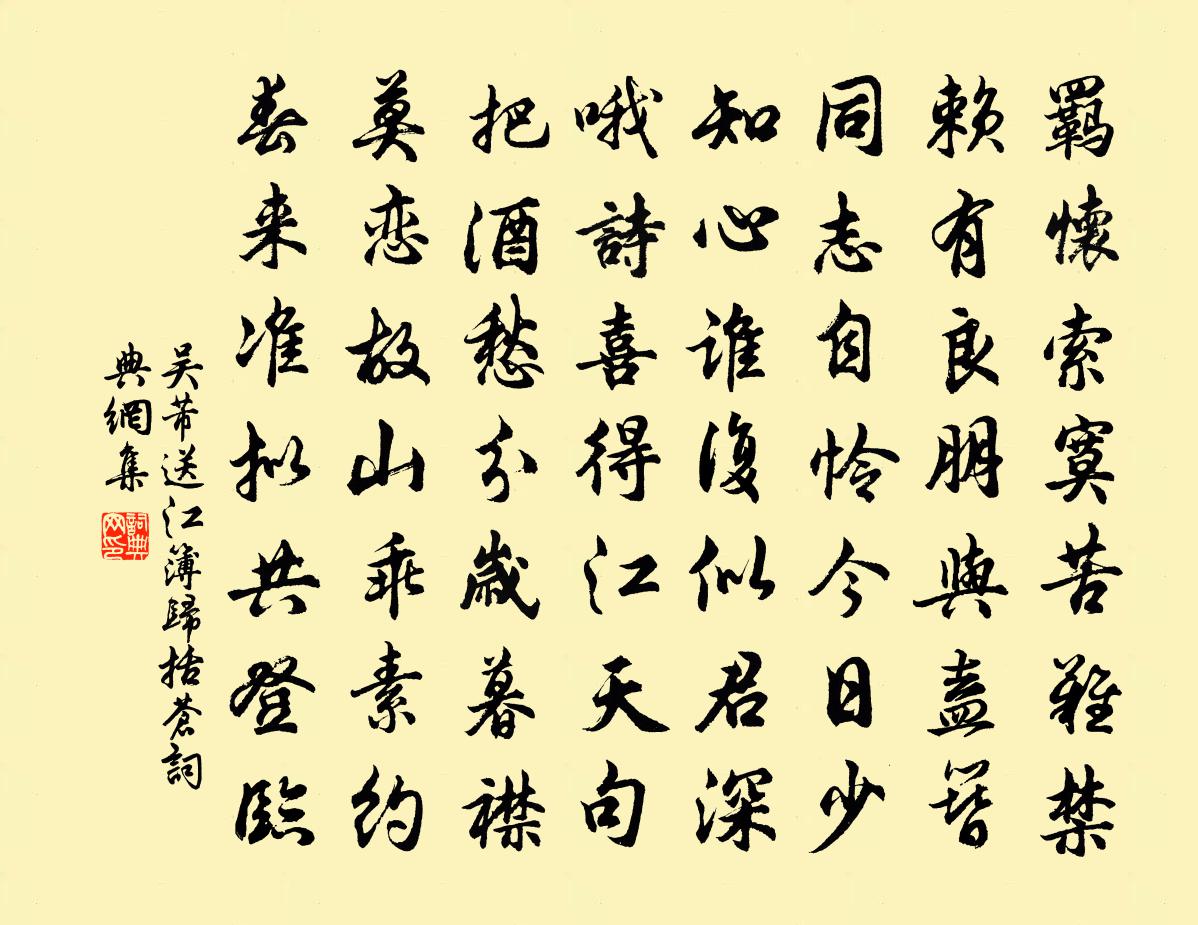 羁懷索寞苦難禁
賴有良朋與盍簪
同志自怜今日少
知心谁復似君深
哦詩喜得江天句
把酒愁分歲暮襟
莫恋故山乖素约
春来准拟共登臨
吴芾送江簿歸括蒼詞
典網集
詞典网印